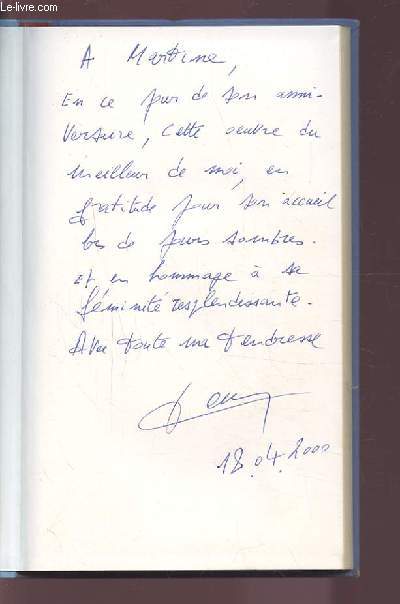 Le-livre.com
A Martine,
En ce jour de son anni-
versaire, cette oeuvre du
meilleur de moi, en
gratitude pour son accueil
lors de jours sombres.
Et en hommage à sa
féminité resplendissante.
Avec toute ma tendresse
18.04.2000